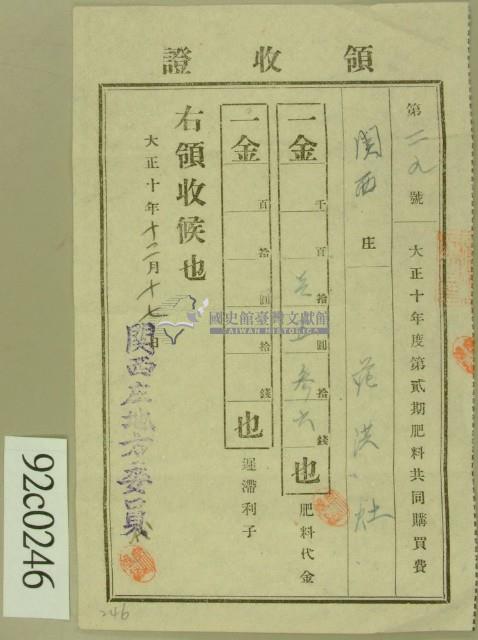 領收證
第二九號 大正十年度第貳期肥料共同購買費
関西庄 范洪社
一金 千 百 拾 圓 参拾 六錢也 肥料代金
一金 百 拾 圓 拾 錢也 遲滯利子
右領收候也
大正十年十二月十七日
関西庄地方委員
國史館臺灣文獻館
TAIWAN HISTORICA
92c0246
246